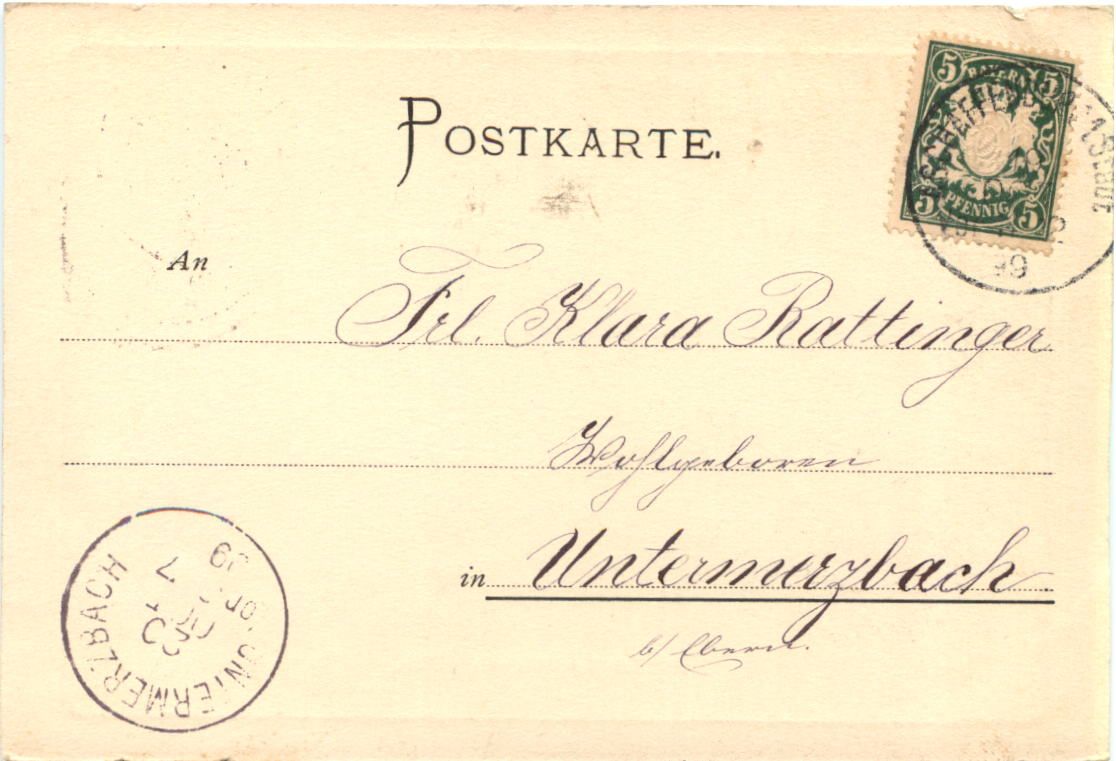 POSTKARTE.
5 BAYERN 5
5 PFENNIG 5
ASCHAFFENBURG 1 Stadt
99
An
Frl. Klara Rattinger
Wohlgeboren
in Untermerzbach.
b/ Ebern.
UNTERMERZBACH
7